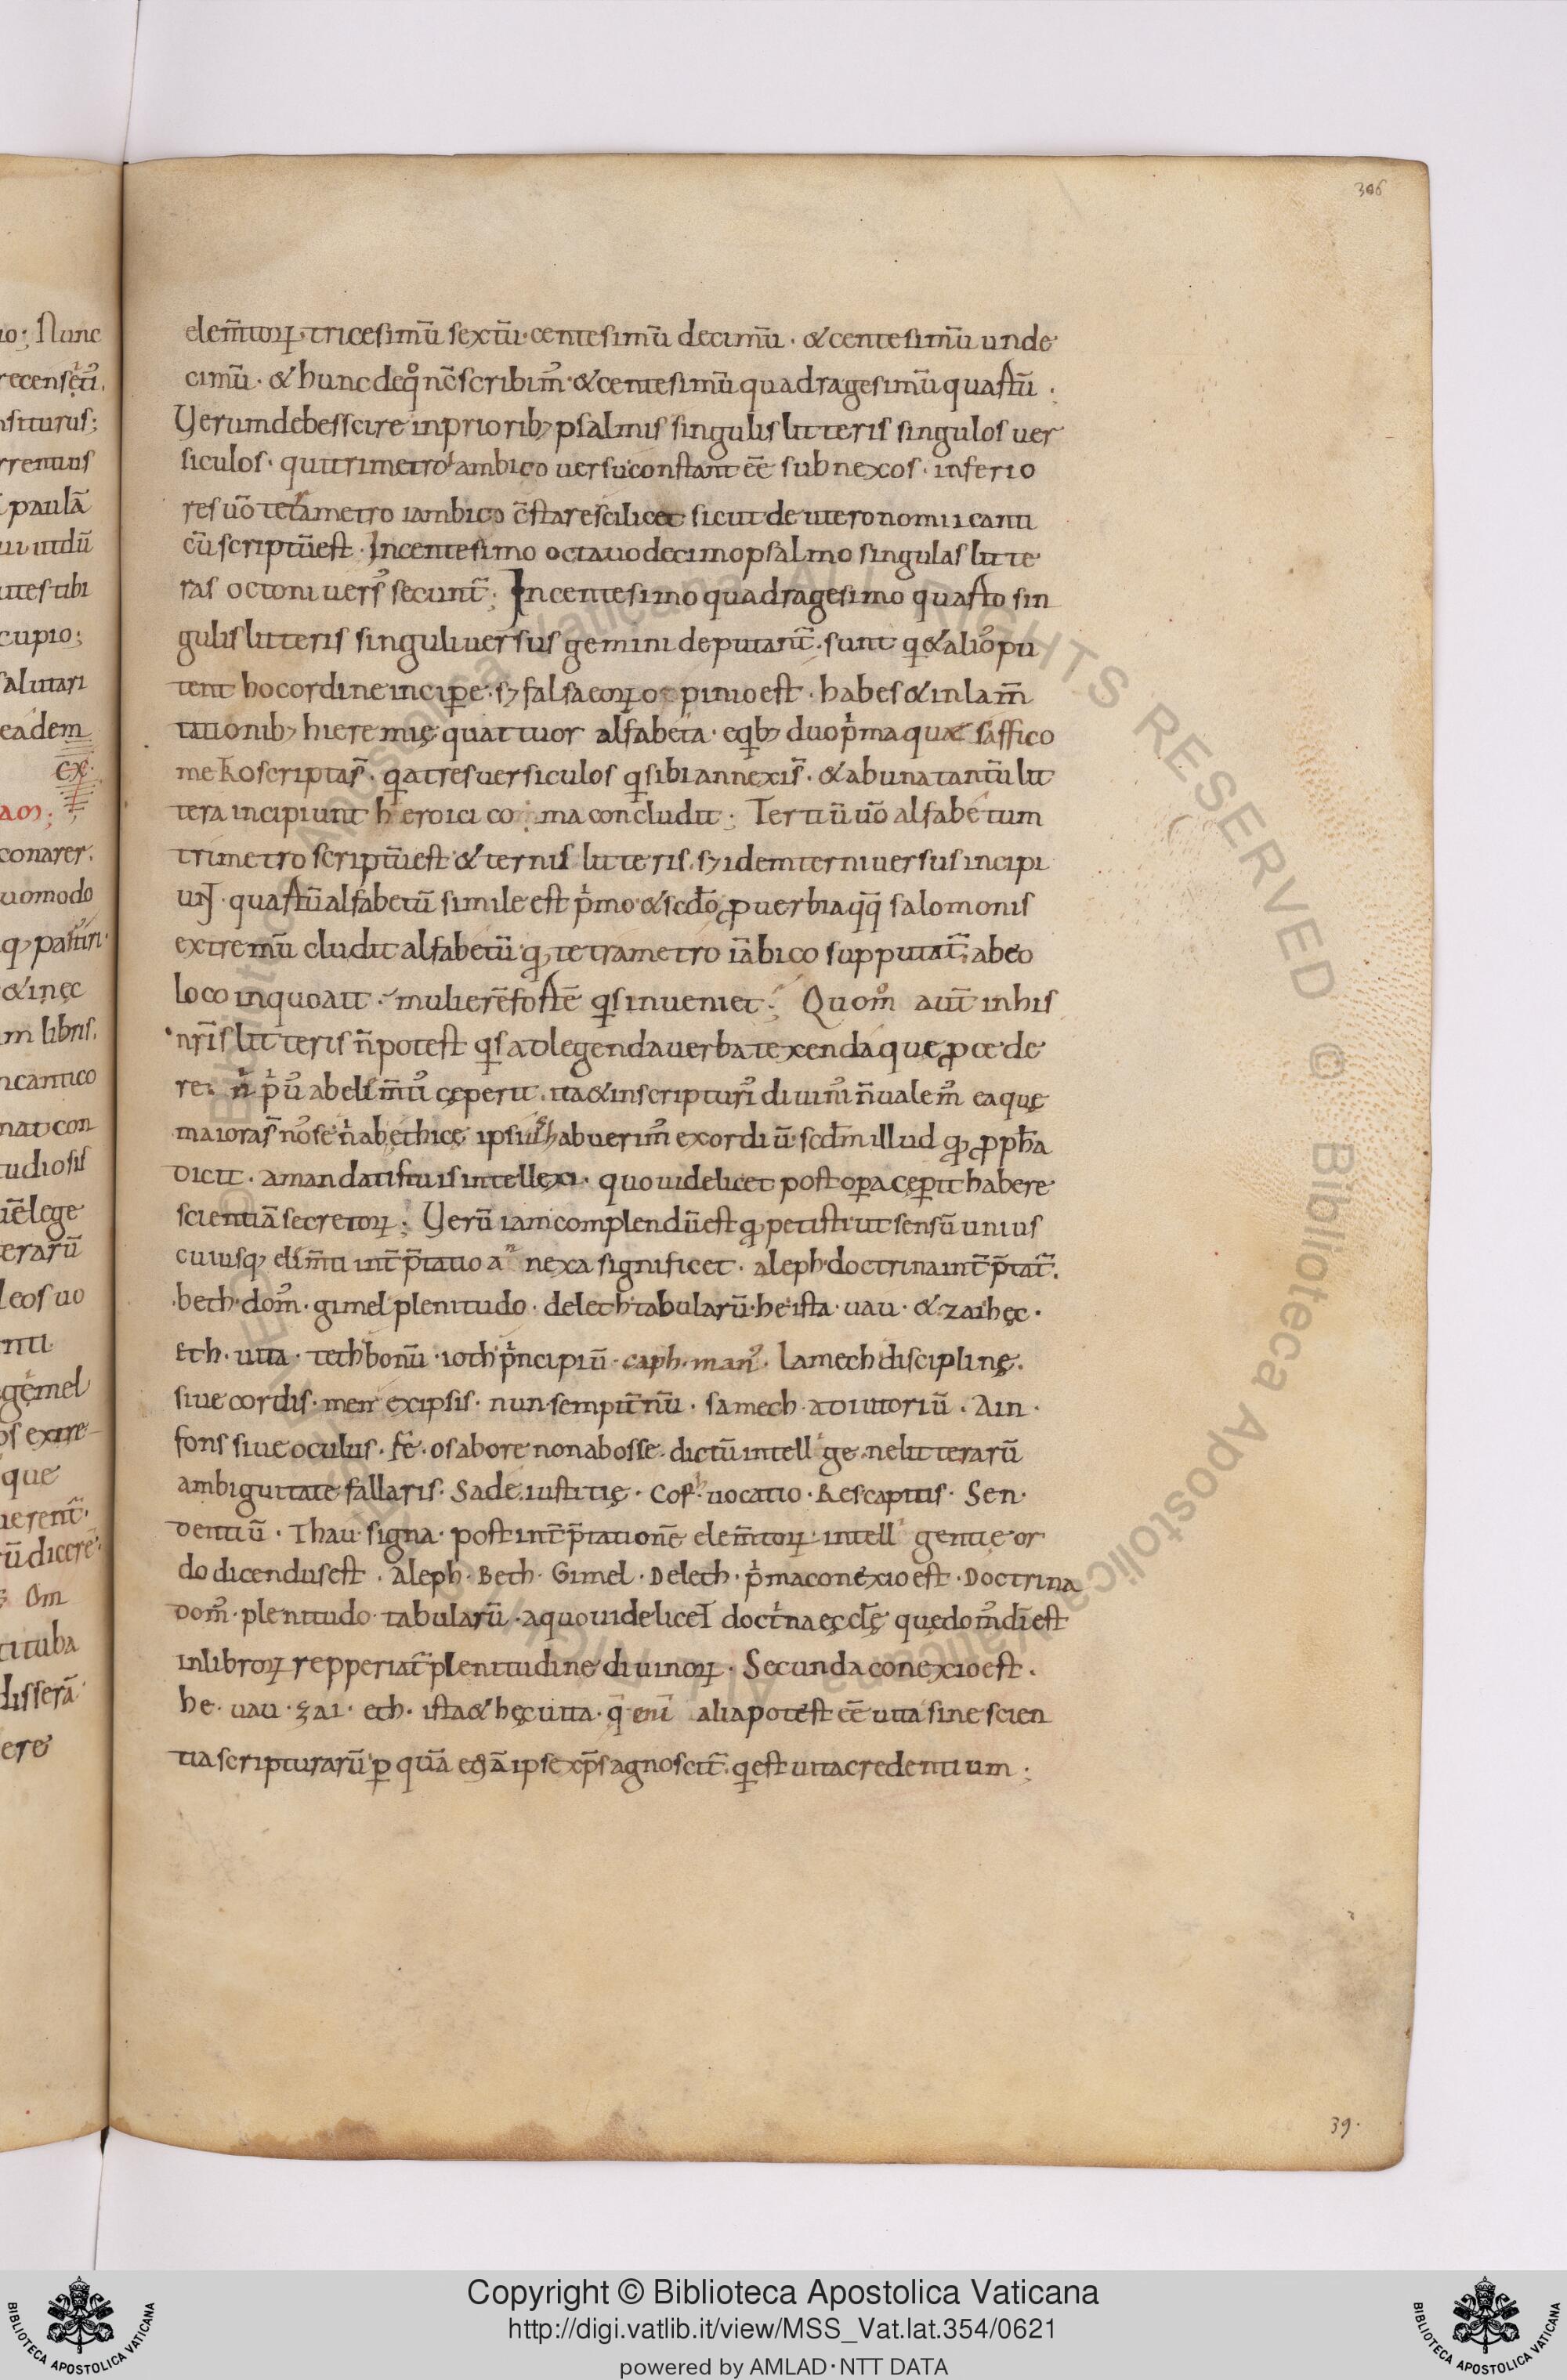 306
elem̄torꝝ· tricesimū sextū· centesimū decimū· &centesimū unde
cimū· & hunc dequo nc̄ scribimꝰ &centesimū quadragesimū quartū·
Verum debes scire in priorib; psalmis singulis litteris singulos uer
siculos· qui trimetro iambico uersu constant eē subnexos· inferio
res uō tetrametro iambico c̄stare scilicet sicut deuteronomii canti
cū scriptū est· In centesimo octauodecimo psalmo singulas litte
ras octoni uersꝰ secunt̄; In centesimo quadragesimo quarto sin
gulis litteris singuli uersus gemini deputant̄· sunt q &alio pu
tent hoc ordine incipe· s; falsa eorꝝ opinio est· habes & in lam̄
tationib; hieremię quattuor alfabeta· e qb; duo pma quasi saffico
metro scripta s̄· qa tres uersiculos q sibi annexi s̄· & ab una tantū lit
tera incipiunt heroici comma concludit; Tertiū uō alfabetum
trimetro scriptū est & ternis litteris· s; idem terni uersus incipi
unt· quartū alfabetū simile est pmo & scdo· puerbia qq salomonis
extremū cludit alfabetū· qđ tetrametro iābico supputat̄; ab eo
loco in quo ait· mulierē fortē qs inueniet; Quomō aut̄ in his
nr̄is litteris n̄ potest qs ad legenda uerba texendaque pcede
re· n pꝰ ab elim̄tꝰ ceperit· ita & in scripturꝰ diuinꝰ n̄ ualemꝰ ea quę
maiora s̄ nosse n ab ethice ipsius habuerimꝰ exordiū· scdm illud qđ ppha
dicit· a mandatis tuis intellexi· quo uidelicet post opa cepit habere
scientiā secretorꝝ; Verū iam complendū est qđ petisti ut sensū unius
cuiusq; elim̄ti int̄ptatio annexa significet· aleph doctrina int̄ptat̄·
beth· domꝰ· gimel plenitudo· deleth tabularū· he ista· uau· & zai hęc·
Eth· uita· teth bonū· ioth pncipiū· caph· manꝰ· lamech disciplinę·
siue cordis· mem ex ipsis· nun· sempit̄nū· samech· adiutoriū· Ain·
fons siue oculus· fe· os ab ore non ab osse· dictū intellige· ne litterarū
ambiguitate fallaris· Sade· iustitię· Cof· uocatio· Res capitis· Sen·
dentiū· Thau· signa· post int̄ptationē elem̄torꝝ· intelligentię or
do dicendus est· Aleph· Beth· Gimel· Deleth· pma conexio est· Doctrina
domꝰ· plenitudo· tabularū· a quo uidelicet doctna ęcclę quę domꝰ dī est
in librorꝝ repperiat̄ plenitudine diuinorꝝ· Secunda conexio est·
he· uau· zai· eth· ista & hęc uita· q̄ enī alia potest eē uita sine scien
tia scripturarū· p quā etiā ipse xp̄s agnoscit̄· q est uita credentium;
39·
Copyright © Biblioteca Apostolica Vaticana
http://digi.vatlib.it/view/MSS_Vat.lat.354/0621
powered by AMLAD·NTT DATA